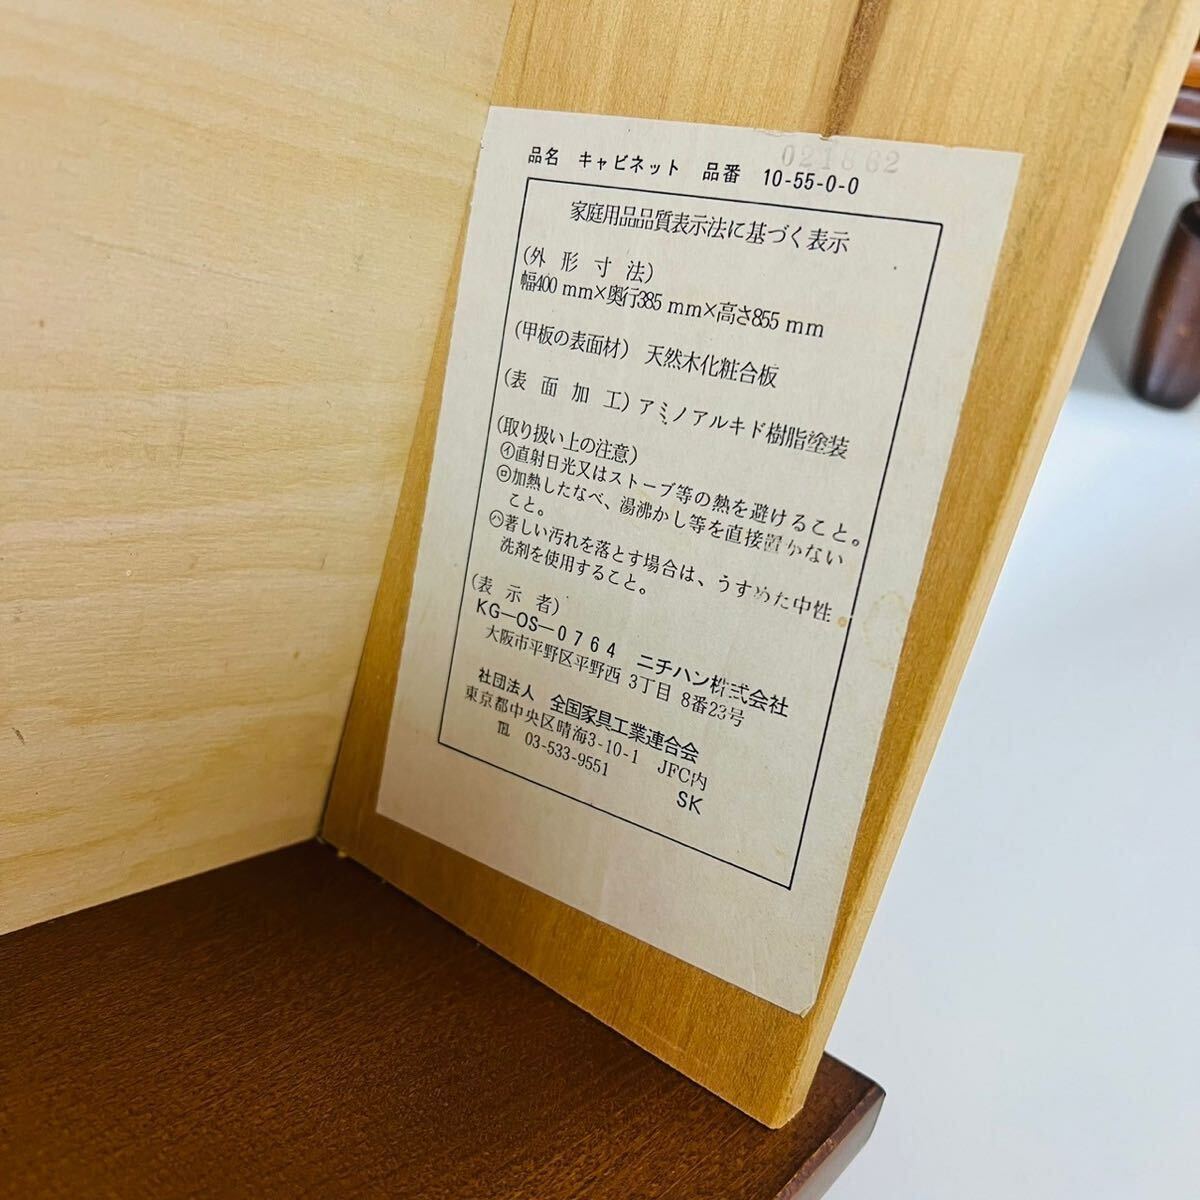 021862
品名 キャビネット 品番 10-55-0-0
家庭用品品質表示法に基づく表示
(外形寸法)
幅400 mm×奥行385 mm×高さ855 mm
(甲板の表面材) 天然木化粧合板
(表面加工) アミノアルキド樹脂塗装
(取り扱い上の注意)
㋑直射日光又はストーブ等の熱を避けること。
㋺加熱したなべ、湯沸かし等を直接置かない
こと。
㋩著しい汚れを落とす場合は、うすめた中性
洗剤を使用すること。
(表示者)
KG-OS-0764 ニチハン株式会社
大阪市平野区平野西 3丁目 8番23号
社団法人 全国家具工業連合会
東京都中央区晴海3-10-1 JFC内
℡ 03-533-9551
SK